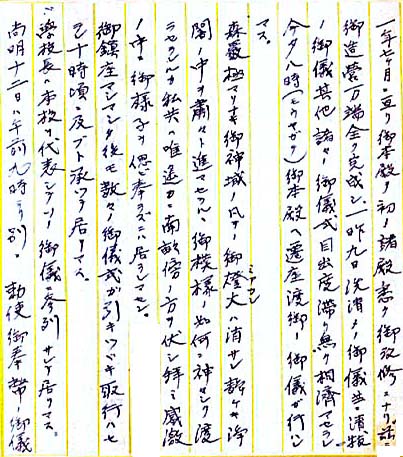 一年七ケ月ニ亘リ御本殿ヲ初メ諸殿悉ク御改修ニナリ、茲ニ
御造営万端全ク完成シ、一昨九日洗清メノ御儀 其ノ清祓
ノ御儀其他諸々ノ御儀式目出度滞リ無ク相済マセラレ
今夕八時(モウスグ)御本殿ヘ遷座渡御ノ御儀ガ行レ
マス。
森厳極マリナキ御神域ノ凡ノ御燈火ハ消サレ静ケキ浄
闇ノ中ヲ粛々ト進マセラル、御模様ノ如何ニ神々シク渡
ラセラルルカ私共ハ唯遥カニ南畝傍ノ方ヲ伏シ拝ミ感激
ノ中ニ御様子ヲ偲ビ奉ラズニハ居ラレマセン。
御鎮座マシマシタ後モ数々ノ御儀式ガ引キツヾキ取行ハセ
ラレ十時頃ニ及ブト承ツテ居リマス。
学校長ハ本校ヲ代表シテソノ御儀ニ参列サレテ居リマス。
尚明十二日ハ午前九時ヨリ別ニ勅使御奉幣ノ御儀